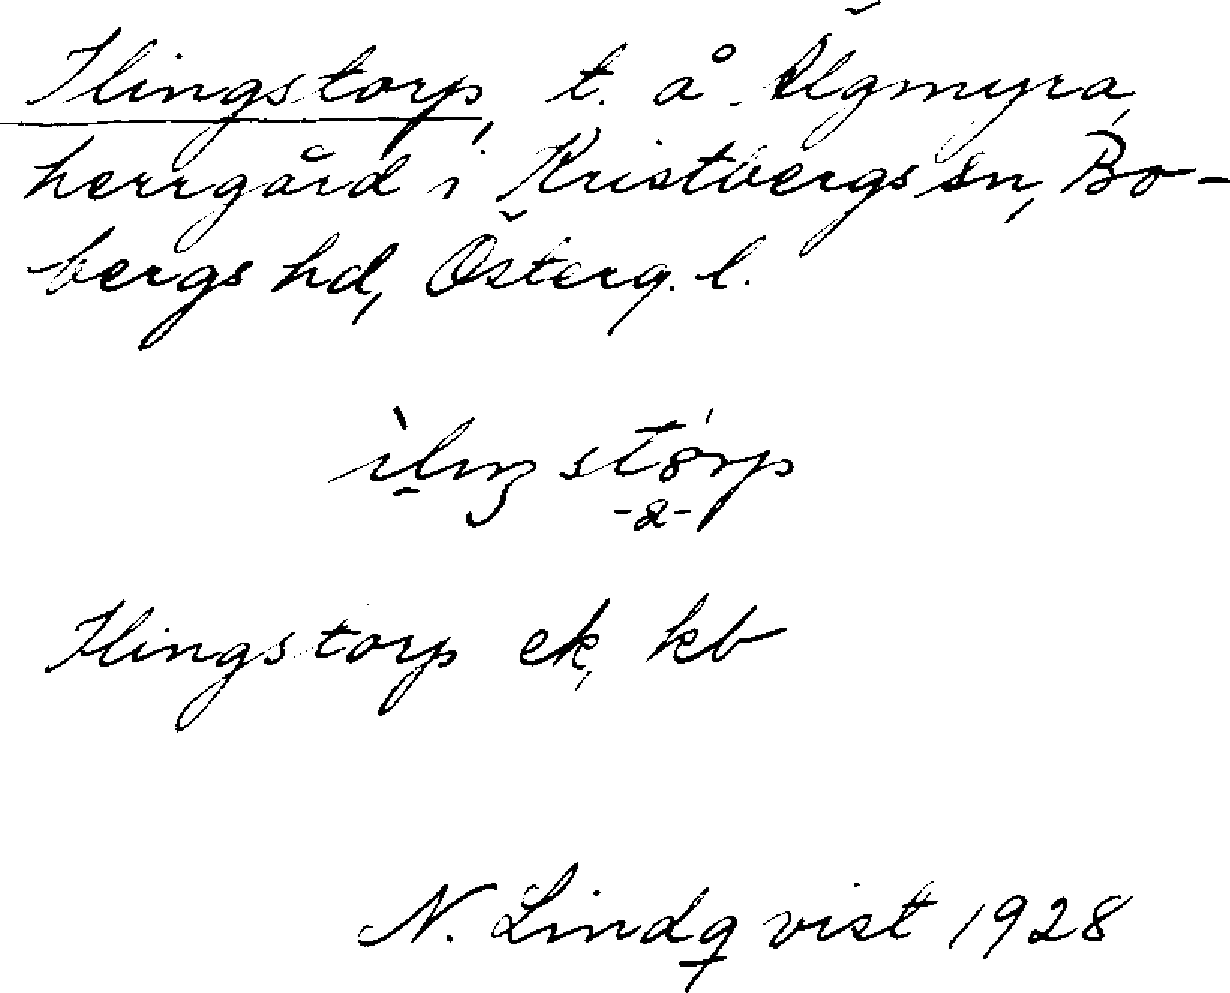 Ilingstorp, t. å Älgmyra,
herrgård i Kristbergs sn, Bo-
bergs hd, Österg. l.
Ilingstorp ek, kb
N. Lindqvist 1928